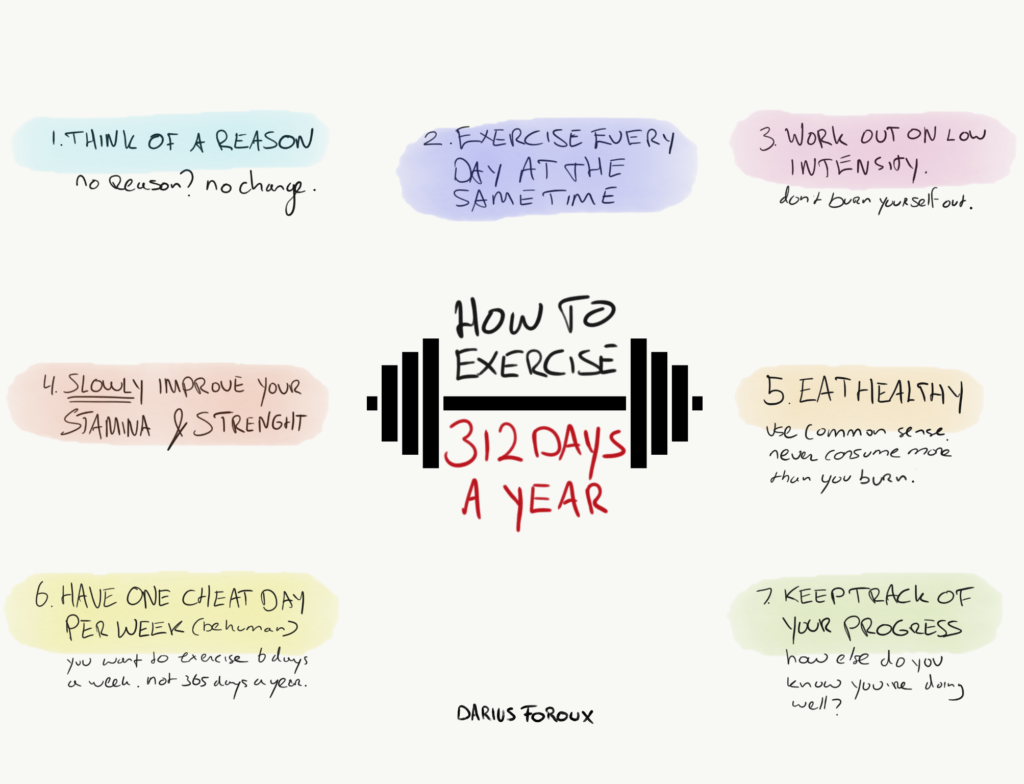 1. THINK OF A REASON
no reason? no change.
2. EXERCISE EVERY
DAY AT THE
SAME TIME
3. WORK OUT ON LOW
INTENSITY.
don't burn yourself out.
HOW TO
EXERCISE
312 DAYS
A YEAR
4. SLOWLY IMPROVE YOUR
STAMINA & STRENGHT
5. EAT HEALTHY
use common sense.
never consume more
than you burn.
6. HAVE ONE CHEAT DAY
PER WEEK (be human)
you want to exercise 6 days
a week. not 365 days a year.
7. KEEP TRACK OF
YOUR PROGRESS
how else do you
know you're doing
well?
DARIUS FOROUX